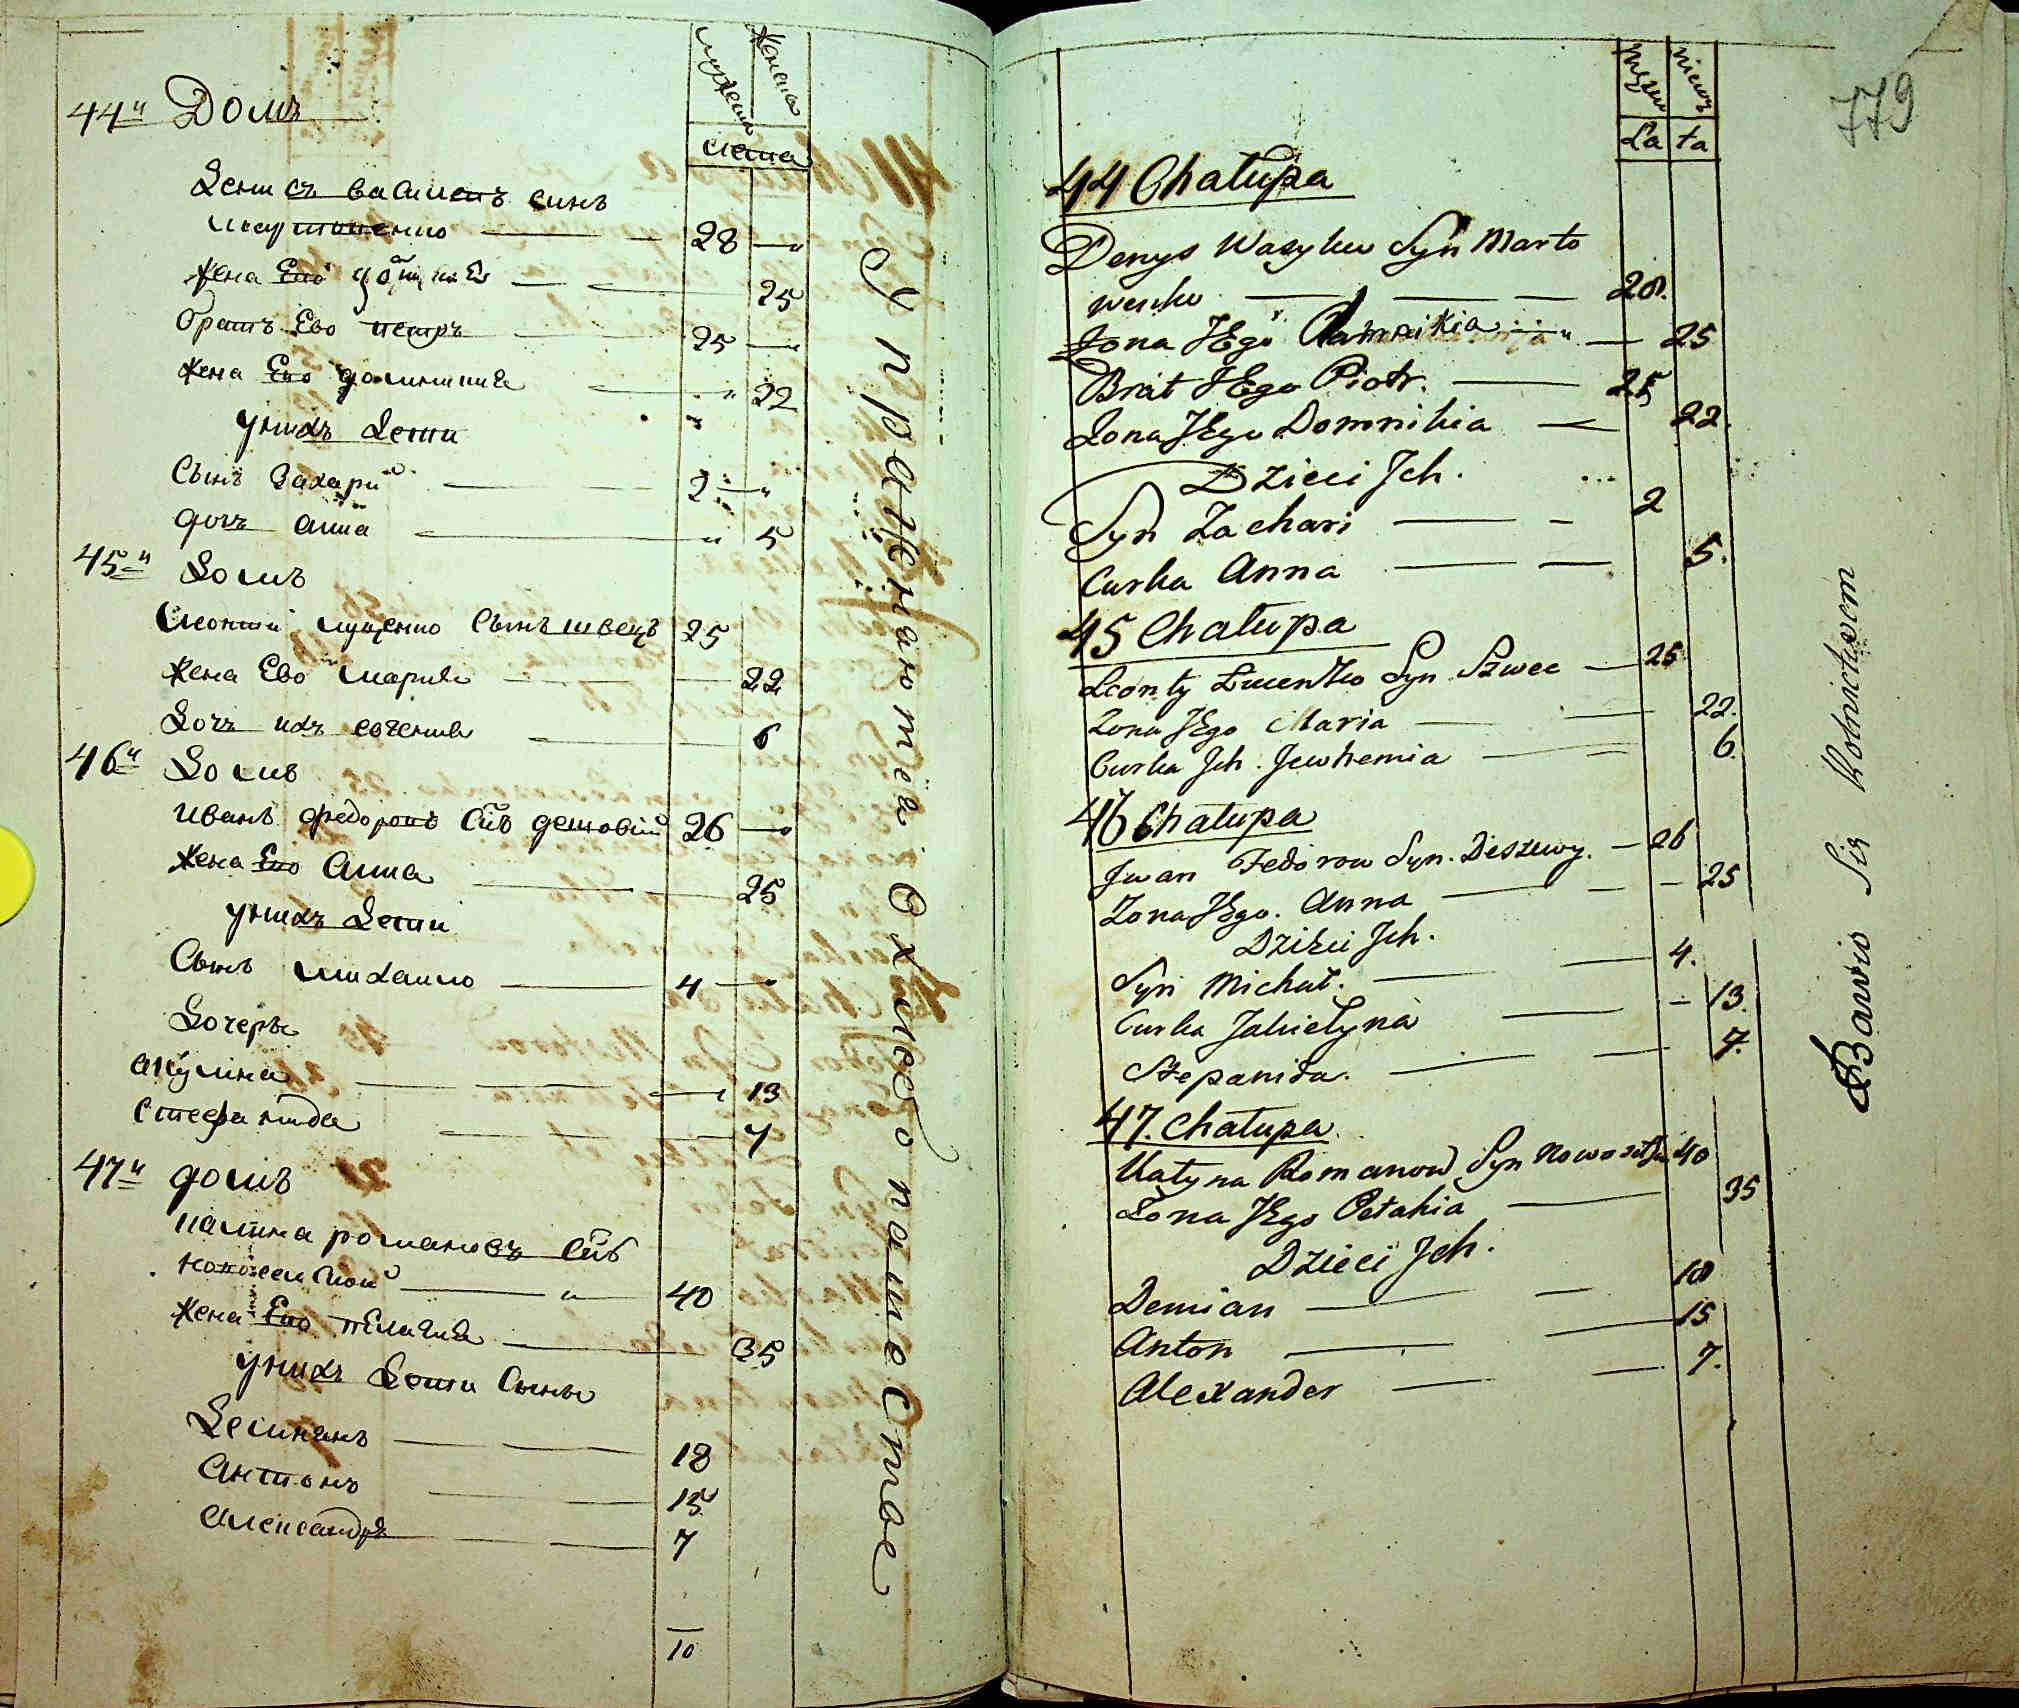 мужеска женска
лета
44й Домъ
Денисъ василевъ синъ
мартыненко 28
жена Его домникия 25
братъ Ево петръ 25
жена Его домникия 22
унихъ Дети
Сынъ Захарий 2
дочъ анна 5
45й Домъ
леонтий луценко Сынъ швецъ 25
жена Ево мария 22
Дочъ ихъ евгения 6
46й Домъ
иванъ федоровъ снъ дешовий 26
жена Его анна 25
унихъ Дети
Сынъ михаило 4
Дочеры
акулина 13
стефанида 7
47й домъ
калина романовъ снъ
40
жена Его пелагия 35
унихъ Дети Сыны
Демианъ 18
Антонъ 15
александръ 7
10
Упражнаютса вхлебопашестве
779
La ta
44 Chałupa
Denys Wasylew Syn Marto
wenko 28.
Zona JEgo Domnikia 25
Brat JEgo Piotr. 25
Zona JEgo Domnikia 22.
Dzieci Jch.
Syn Zachari 2
Curka Anna 5.
45 Chałupa
Leonty Lucenko Syn Szwec 25
Zona JEgo Maria 22.
Curka Jch. Jewhemia 6.
46 Chałupa
Jwan Fedorow Syn. Deszewy. 26
Zona JEgo. Anna 25
Dzieci Jch.
Syn Michał. 4.
Curka Jakielyna 13.
Stepanida. 7.
47. Chałupa
Kalyna Romanow Syn 40
Zona JEgo Pełahia 35
Dzieci Jch.
Demian 18
Anton 15
Alexander 7.
Bawio Się Rolnictwem